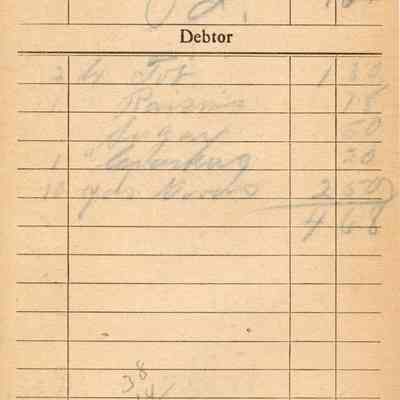 Pd.
Debtor
2 lb Tob 1 30
1 Raisins 18
Sugar 50
1 " 20
10 yds Goods 2 50
4 68
38
14